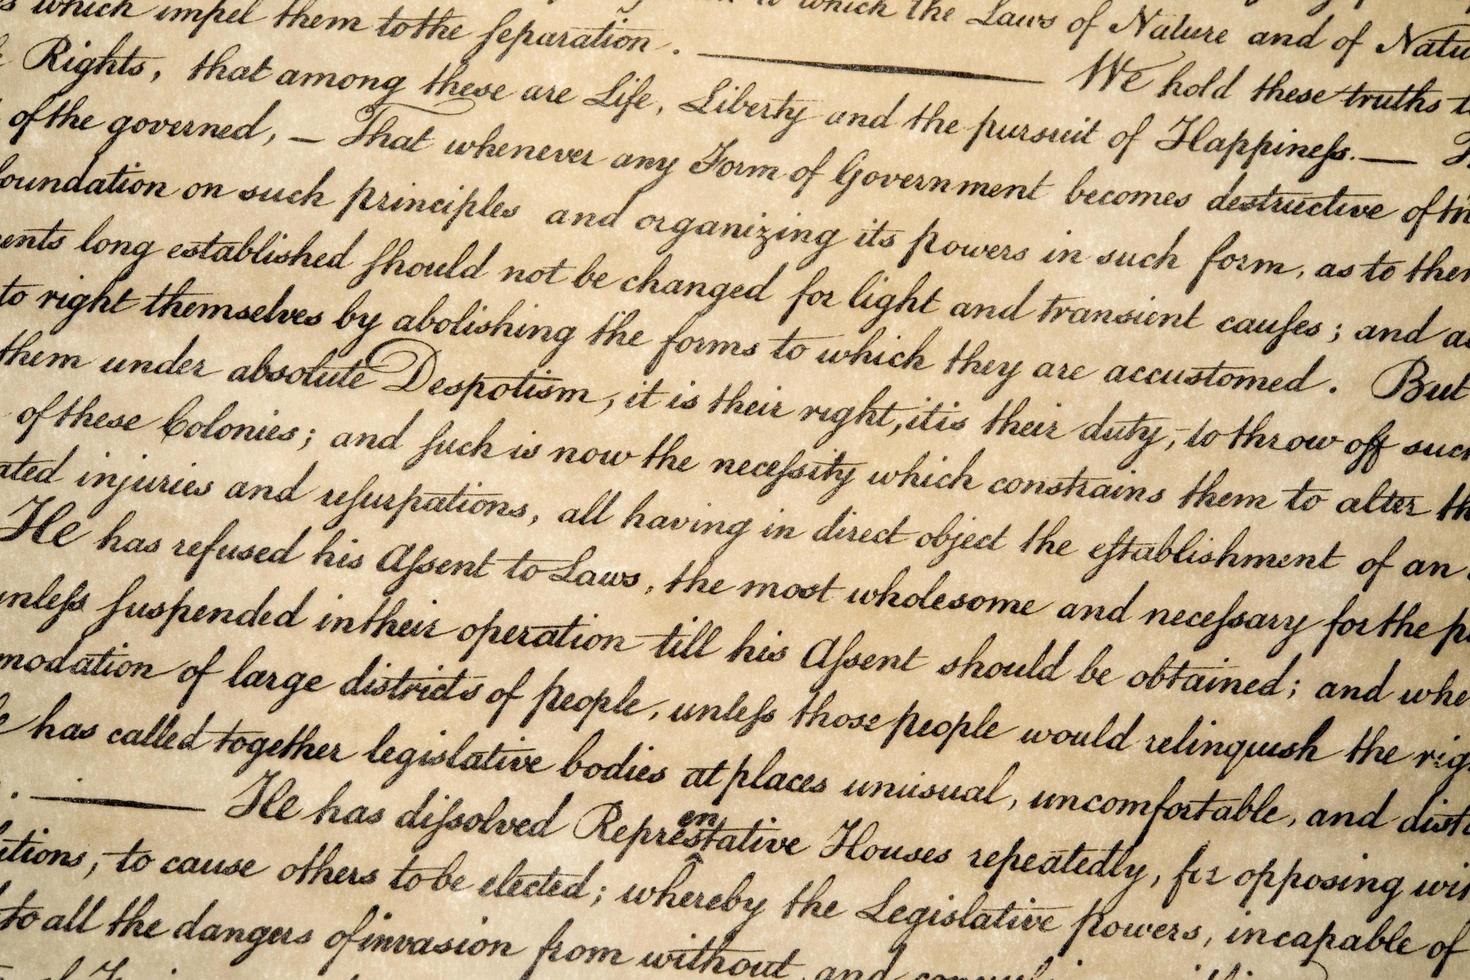 which impel them to the ſeparation . which the Laws of Nature and of
Rights, that among these are Life, Liberty and the pursuit of Happineſs. — We hold these truths
of the governed, — That whenever any Form of Government becomes destructive of
on such principles and organizing its powers in such form, as to
long established ſhould not be changed for light and transient cauſes ; and
to right themselves by abolishing the forms to which they are accustomed . But
them under absolute Despotism, it is their right, it is their duty, to throw off
of these Colonies ; and ſuch is now the neceſsity which constrains them to alter
injuries and uſurpations, all having in direct object the eſtablishment of an
He has refused his Aſsent to Laws, the most wholesome and neceſsary for the
unleſs ſuspended in their operation till his Aſsent should be obtained ; and
of large districts of people, unleſs those people would relinquish the
has called together legislative bodies at places unusual, uncomfortable, and
. — He has diſsolved Representative Houses repeatedly, for opposing
to cause others to be elected ; whereby the Legislative powers, incapable of
to all the dangers of invasion from without, and